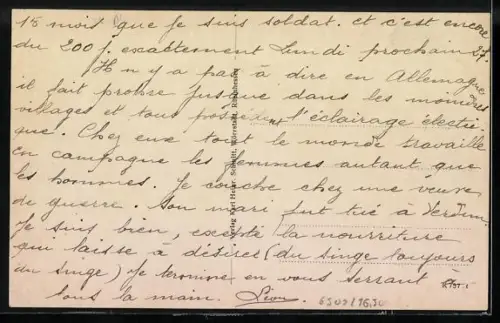 15 mois que je suis soldat. et c'est encore
du 200 f. exactement Lundi prochain 27.
Il n y a pas à dire en Allemagne
il fait propre jusque dans les moindres
villages et tous possèdent l'éclairage électri
que. Chez eux tout le monde travaille
en campagne les femmes autant que
les hommes. Je couche chez une veuve
de guerre. Son mari fut tué à Verdun.
Je suis bien, excepté la nourriture
qui laisse à désirer (du singe toujours
du singe) Je termine en vous serrant à
tous la main. Léon.
Verlag Karl Heinr.
6309/16,50